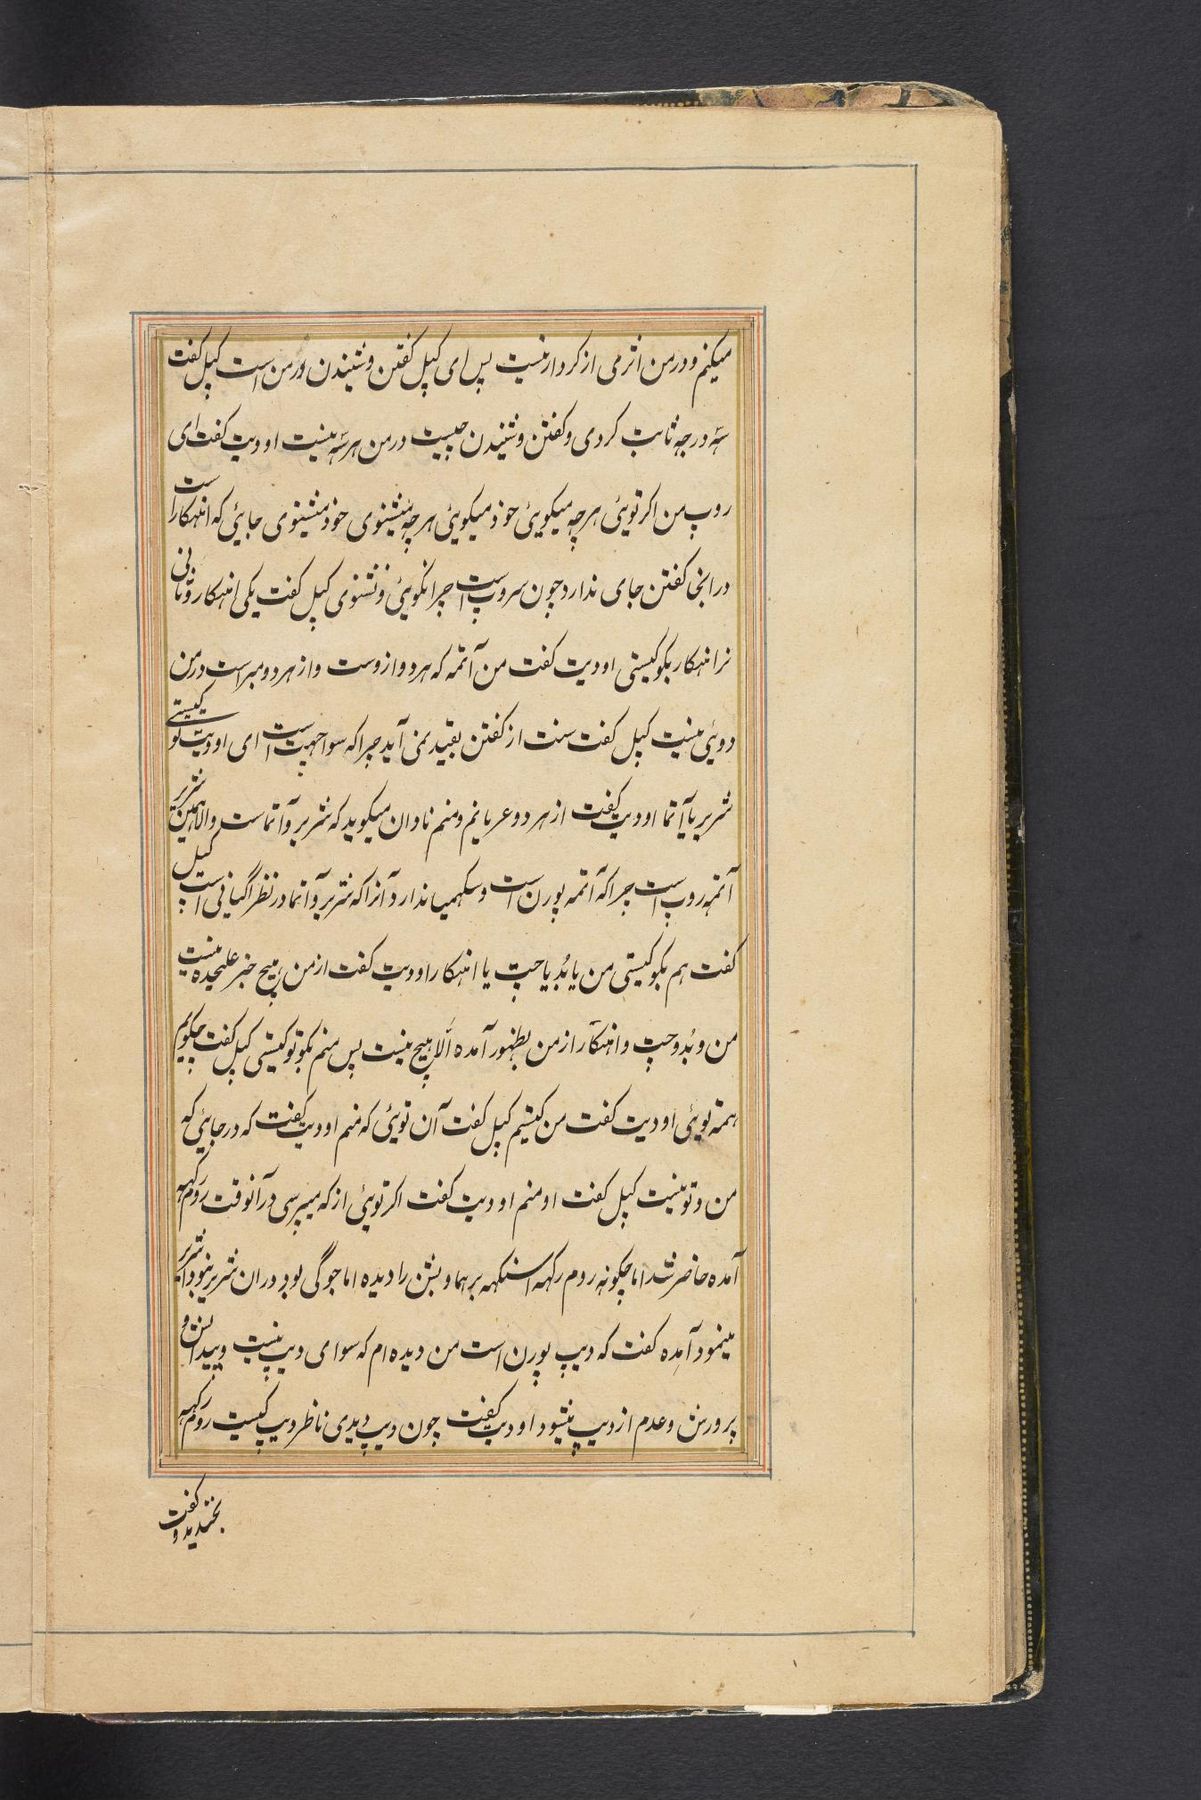 میکنم و در من اثرمی از کردار نیست پس ای کپل گفتن و شنیدن در من است کپل گفت
سه درجه ثابت کردی و گفتن و شنیدن چیست در من هر سه نیست اودیت گفت ای
روپ من اکر توئی هر چه میکوئی خود میکوئی هر چه میشنوی خود میشنوی جائی که انهکار است
درانجا گفتن جای ندارد چون سروپ است چرا نکوئی و نشنوی کپل گفت یکی انهکار و ثانی
نرانهکار بکو کیستی اودیت گفت من آتمه که هر دو ازوست و از هر دو مبراست در من
دوئی نیست کپل گفت سنت از گفتن بقید نمی آید چراکه سواجهپ است ای اودیت تو کیستی
شریر یا آتما اودیت گفت از هر دو عریانم و منم نادان میکوید که شریر و آتماست والا همین شریر
آتمه روپ است چراکه آتمه پورن است و سکهمیا ندارد آنراکه شریر و آتما در نظر اگیانی است کپل
گفت هم بکو کیستی من یا بُد یا چت یا انهکار اودیت گفت از من هیچ خبر علیحده نیست
من و بُد و چت و انهکار از من بظهور آمده اَلّا هیچ نیست پس منم بکو تو کیستی کپل گفت چکویم
همه توئی اودیت گفت من کیستم کپل گفت آن توئی که منم اودیت گفت که در جائی که
من و تو نیست کپل گفت او منم اودیت گفت اکر توئی از که میپرسی در آنوقت روم رکهه
آمده حاضر شد اما چکونه روم رکهه اسنکهه برهما و بشن را دیده اما جوگی بود دران شریر نبود اما شریر
مینمود آمده گفت که دیپ پورن است من دیده ام که سوای دیپ نیست و پیدایش و
پرورش و عدم از دیپ میشود اودیت گفت چون دیپ دیدی ناظر دیپ کیست روم رکهه
بخندید و گفت